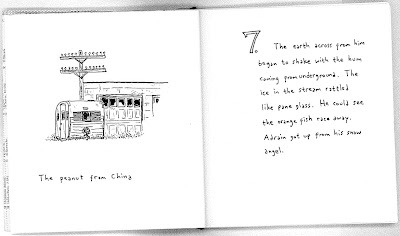 The peanut from China
7.
The earth across from him
began to shake with the hum
coming from underground. The
ice in the stream rattled
like pane glass. He could see
the orange fish race away.
Adrain got up from his snow
angel.